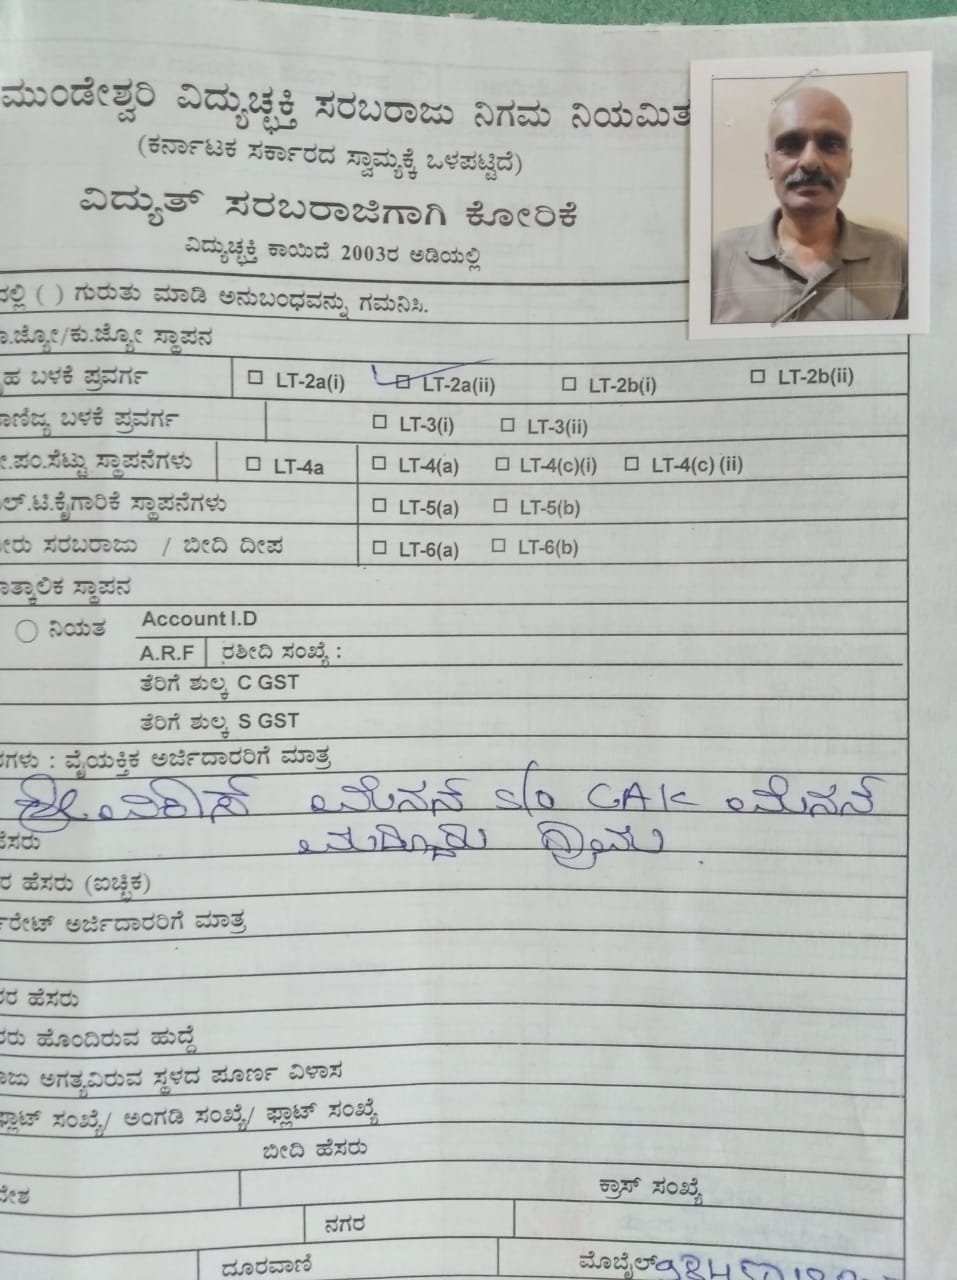 ಮುಂಡೇಶ್ವರಿ ವಿದ್ಯುಚ್ಛಕ್ತಿ ಸರಬರಾಜು ನಿಗಮ ನಿಯಮಿತ
(ಕರ್ನಾಟಕ ಸರ್ಕಾರದ ಸ್ವಾಮ್ಯಕ್ಕೆ ಒಳಪಟ್ಟಿದೆ)
ವಿದ್ಯುತ್ ಸರಬರಾಜಿಗಾಗಿ ಕೋರಿಕೆ
ವಿದ್ಯುಚ್ಛಕ್ತಿ ಕಾಯಿದೆ 2003ರ ಅಡಿಯಲ್ಲಿ
ದಲ್ಲಿ ( ) ಗುರುತು ಮಾಡಿ ಅನುಬಂಧವನ್ನು ಗಮನಿಸಿ.
.ಜ್ಯೋ/ಕು.ಜ್ಯೋ ಸ್ಥಾಪನ
ಹ ಬಳಕೆ ಪ್ರವರ್ಗ LT-2a(i) LT-2a(ii) LT-2b(i) LT-2b(ii)
ಣಿಜ್ಯ ಬಳಕೆ ಪ್ರವರ್ಗ LT-3(i) LT-3(ii)
.ಪಂ.ಸೆಟ್ಟು ಸ್ಥಾಪನೆಗಳು LT-4a LT-4(a) LT-4(c)(i) LT-4(c) (ii)
ಲ್.ಟಿ.ಕೈಗಾರಿಕೆ ಸ್ಥಾಪನೆಗಳು LT-5(a) LT-5(b)
ೀರು ಸರಬರಾಜು / ಬೀದಿ ದೀಪ LT-6(a) LT-6(b)
ಾತ್ಕಾಲಿಕ ಸ್ಥಾಪನ
ನಿಯತ Account I.D
A.R.F ರಶೀದಿ ಸಂಖ್ಯೆ :
ತೆರಿಗೆ ಶುಲ್ಕ C GST
ತೆರಿಗೆ ಶುಲ್ಕ S GST
ರಗಳು : ವೈಯಕ್ತಿಕ ಅರ್ಜಿದಾರರಿಗೆ ಮಾತ್ರ
ಶ್ರೀ ಮೆನನ್ s/o CAK ಮೆನನ್
ಹೆಸರು ಗ್ರಾಮ
ರ ಹೆಸರು (ಐಚ್ಛಿಕ)
ರೇಟ್ ಅರ್ಜಿದಾರರಿಗೆ ಮಾತ್ರ
ರರ ಹೆಸರು
ರರು ಹೊಂದಿರುವ ಹುದ್ದೆ
ಾಜು ಅಗತ್ಯವಿರುವ ಸ್ಥಳದ ಪೂರ್ಣ ವಿಳಾಸ
ಫ್ಲಾಟ್ ಸಂಖ್ಯೆ/ ಅಂಗಡಿ ಸಂಖ್ಯೆ/ ಫ್ಲಾಟ್ ಸಂಖ್ಯೆ
ಬೀದಿ ಹೆಸರು
ದೇಶ ಕ್ರಾಸ್ ಸಂಖ್ಯೆ
ನಗರ
ದೂರವಾಣಿ ಮೊಬೈಲ್